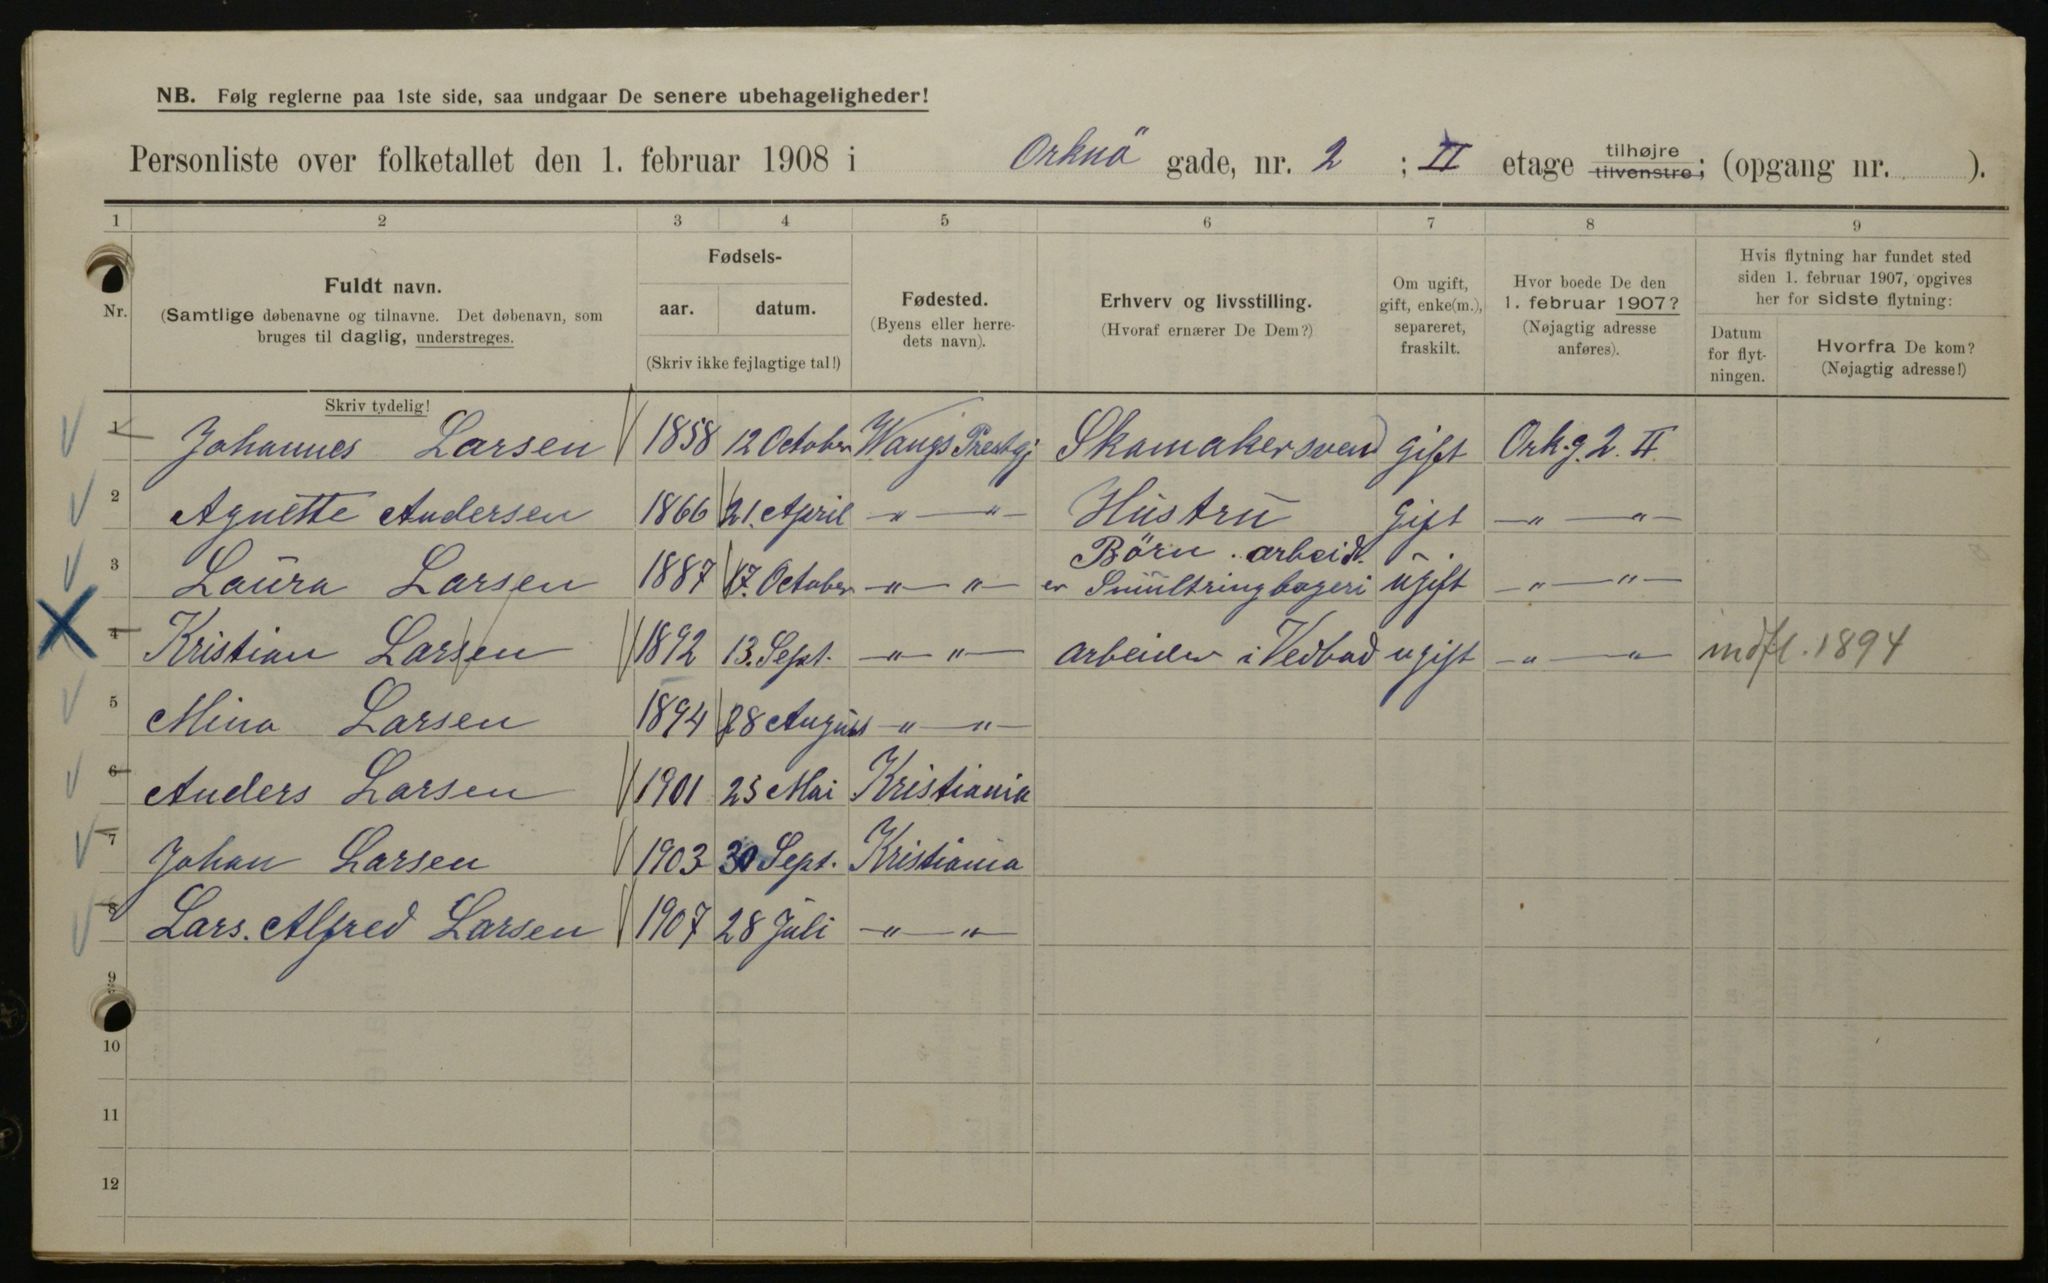 NB. Følg reglerne paa 1ste side, saa undgaar De senere ubehageligheder!
Personliste over folketallet den 1. februar 1908 i Orknö gade, nr. 2 ; II etage tilhøjre tilvenstre; (opgang nr. ).
1 2 3 4 5 6 7 8 9
Nr.
Fuldt navn.
(Samtlige døbenavne og tilnavne. Det døbenavn, som
bruges til daglig, understreges.
Skriv tydelig!
Fødsels-
aar. datum.
(Skriv ikke fejlagtige tal!)
Fødested.
(Byens eller herre-
dets navn).
Erhverv og livsstilling.
(Hvoraf ernærer De Dem?)
Om ugift,
gift, enke(m.),
separeret,
fraskilt.
Hvor boede De den
1. februar 1907?
(Nøjagtig adresse
anføres).
Hvis flytning har fundet sted
siden 1. februar 1907, opgives
her for sidste flytning:
Datum
for flyt-
ningen.
Hvorfra De kom?
(Nøjagtig adresse!)
1 Johannes Larsen 1858 12 October Wangs Prestgj Skomakersvend gift Ork.g. 2. II
2 Agnette Andersen 1866 21. April -"- -"- Hustru gift -"- -"-
Börn . arbeid.
3 Laura Larsen 1887 17. October -"- "- er Smultringbageri ugift -"- -"-
4 Kristian Larsen 1892 13. Sept. -"- "- arbeider i Vedbod ugift -"- -"- indfl. 1894
5 Mina Larsen 1894 28 August -"- "-
6 Anders Larsen 1901 25 Mai Kristiania
7 Johan Larsen 1903 30 Sept. Kristiania
8 Lars. Alfred Larsen 1907 28 Juli -"- "-
9
10
11
12